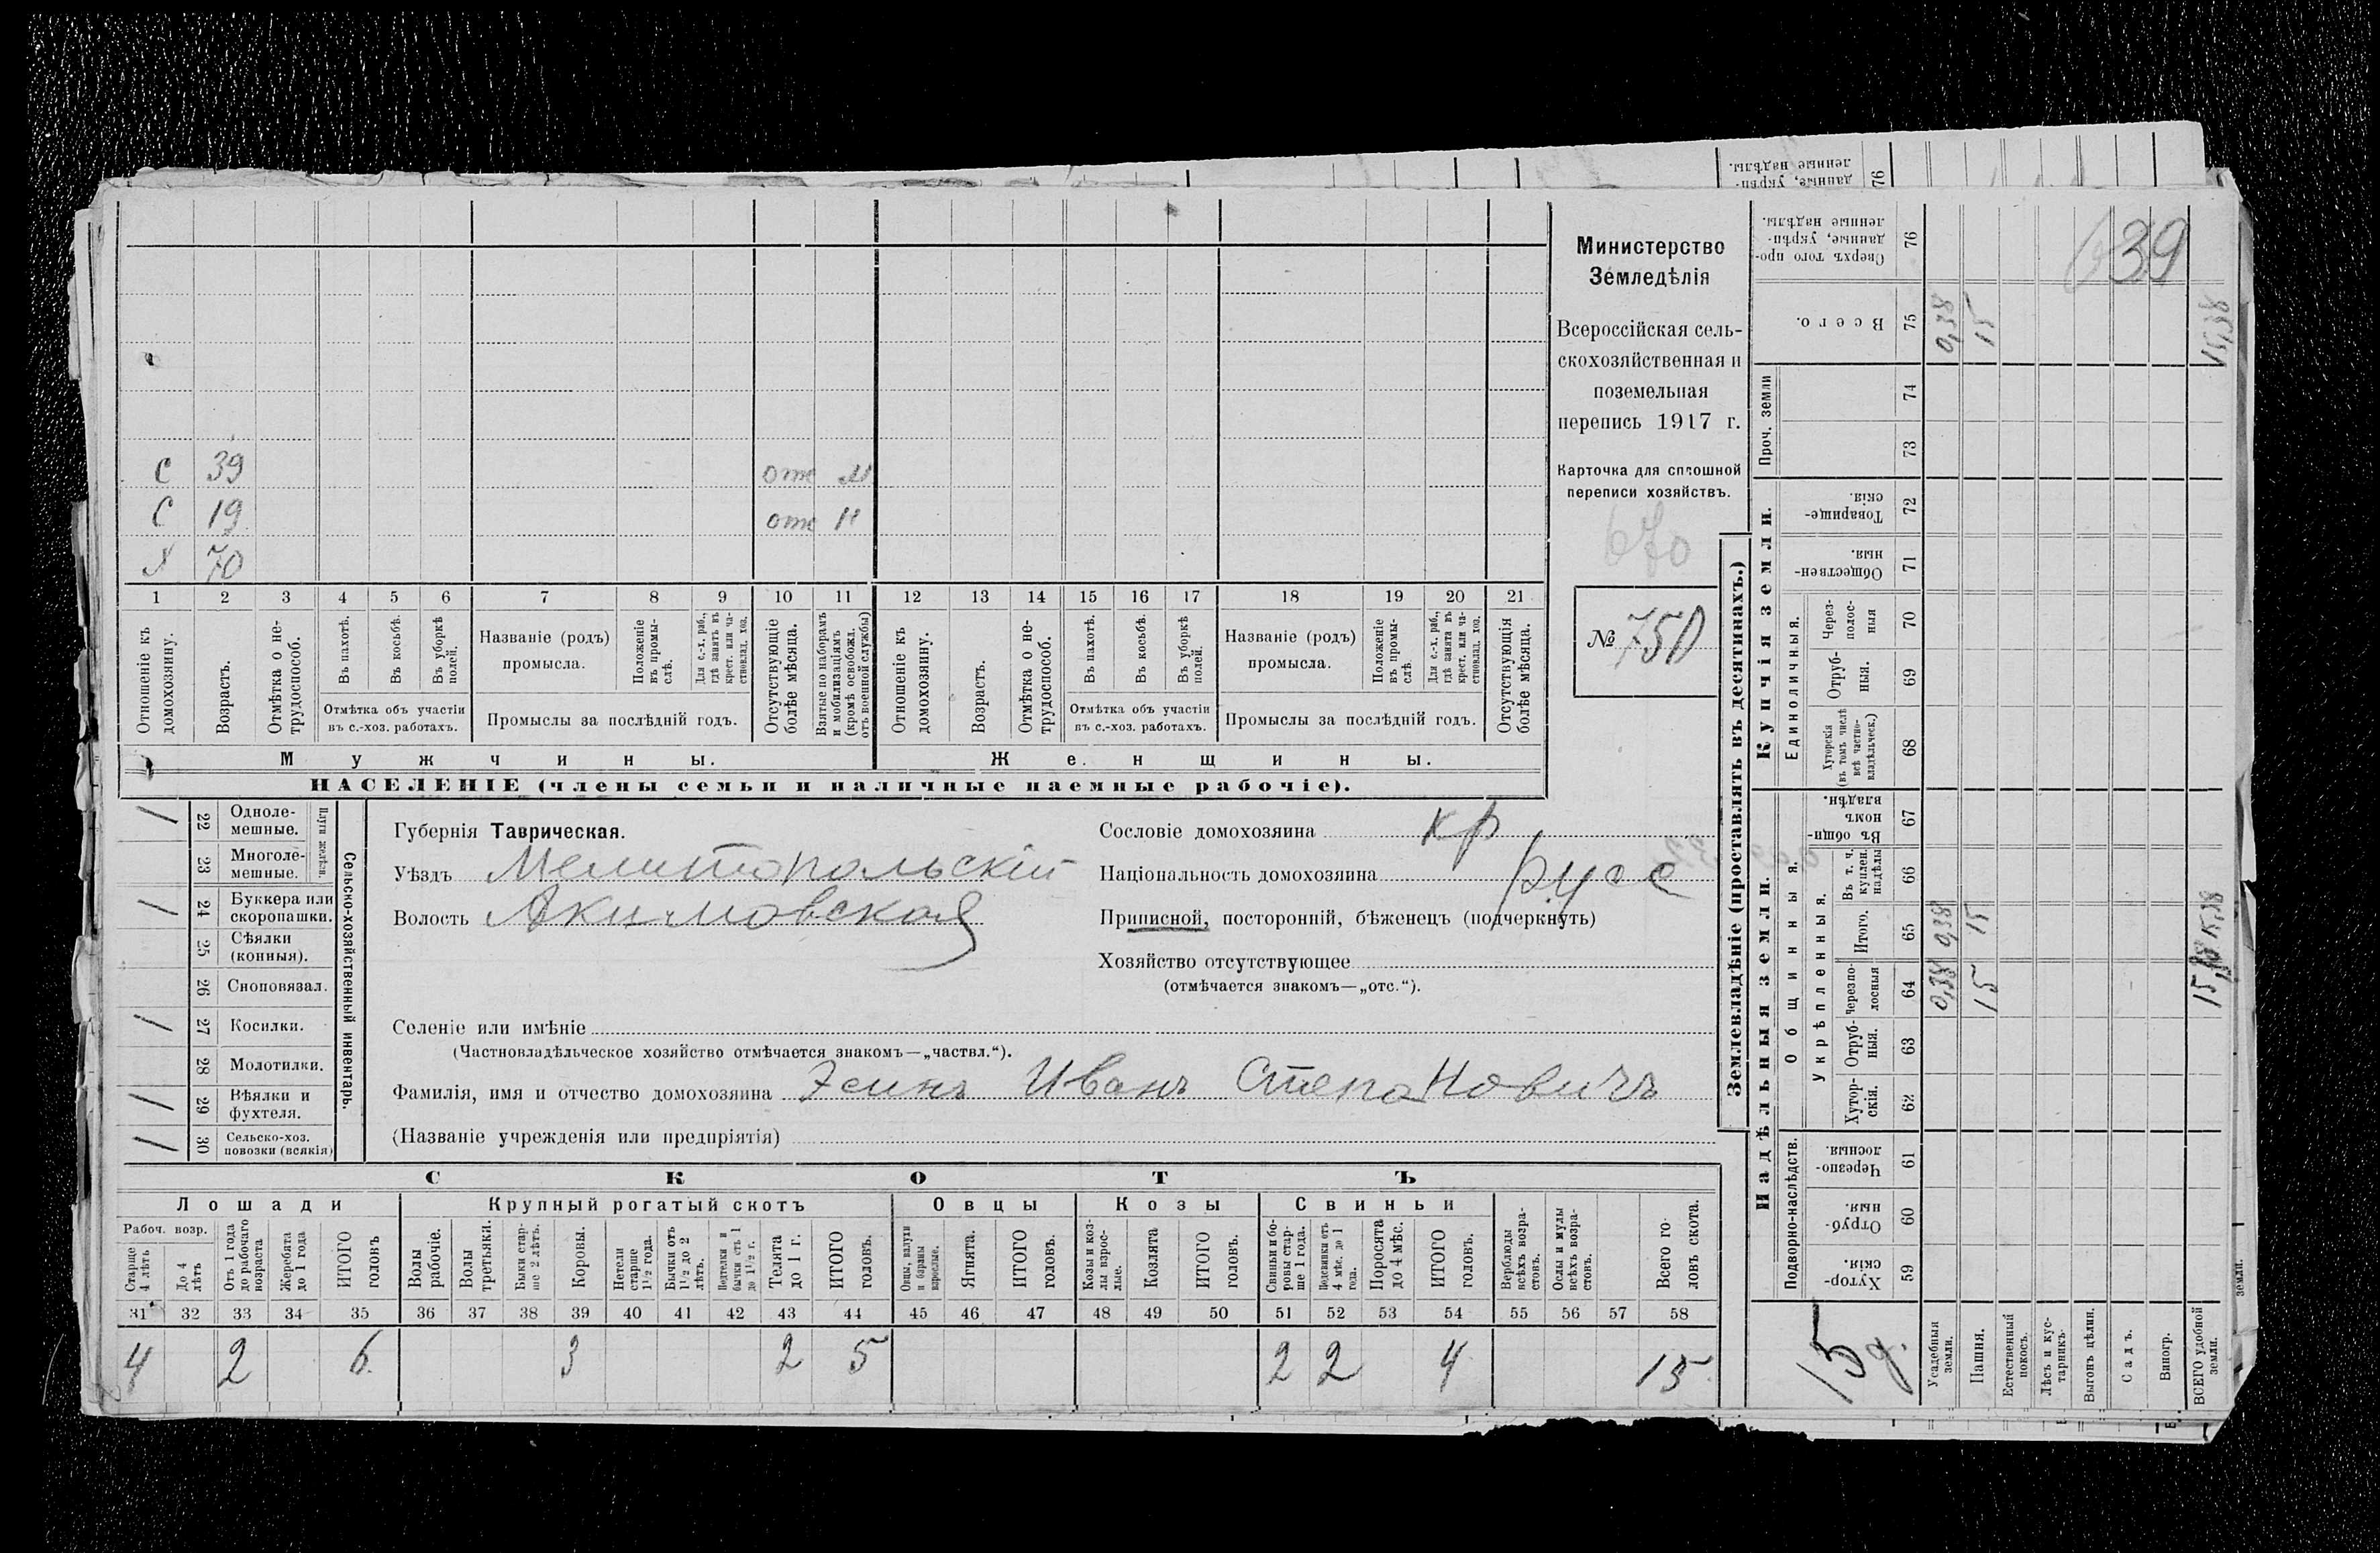 Министерство
Земледѣлія
Всероссійская сель-
скохозяйственная и
поземельная
перепись 1917 г.
Карточка для сплошной
переписи хозяйствъ.
670
№ 750
639
С 39 отс
С 19 отс
Х 70
1 2 3 4 5 6 7 8 9 10 11 12 13 14 15 16 17 18 19 20 21
Отношеніе къ домохозяину.
Возрастъ.
Отмѣтка о не-трудоспособ.
Въ пахотѣ.
Въ косьбѣ.
Въ уборкѣ полей.
Отмѣтка объ участіи
въ с.-хоз. работахъ.
Названіе (родъ)
промысла.
Положеніе въ промы-слѣ.
Для с.-х. раб., гдѣ занятъ въ крест. или ча-стновлад. хоз.
Промыслы за послѣдній годъ.
Отсутствующіе болѣе мѣсяца.
Взятые по наборамъ и мобилизаціямъ (кромѣ освобожд. отъ военной службы)
Отношеніе къ домохозяину.
Возрастъ.
Отмѣтка о не-трудоспособ.
Въ пахотѣ.
Въ косьбѣ.
Въ уборкѣ полей.
Отмѣтка объ участіи
въ с.-хоз. работахъ.
Названіе (родъ)
промысла.
Положеніе въ промы-слѣ.
Для с.-х. раб., гдѣ занята въ крест. или ча-стновлад. хоз.
Промыслы за послѣдній годъ.
Отсутствующія болѣе мѣсяца.
Мужчины. Женщины.
НАСЕЛЕНІЕ (члены семьи и наличные наемные рабочіе).
Сельско-хозяйственный инвентарь.
Плуги желѣзн.
/ 22 Одноле-мешные.
23 Многоле-мешные.
/ 24 Буккера или скоропашки.
25 Сѣялки (конныя).
26 Сноповязал.
/ 27 Косилки.
28 Молотилки.
/ 29 Вѣялки и фухтеля.
/ 30 Сельско-хоз. повозки (всякія)
Губернія Таврическая.
Уѣздъ Мелитопольскій
Волость Акимовская
Сословіе домохозяина кр
Національность домохозяина русс
Приписной, посторонній, бѣженецъ (подчеркнуть)
Хозяйство отсутствующее
(отмѣчается знакомъ—„отс.“).
Селеніе или имѣніе
(Частновладѣльческое хозяйство отмѣчается знакомъ—„частвл.“).
Фамилія, имя и отчество домохозяина Эсинъ Иванъ Степановичъ
(Названіе учрежденія или предпріятія)
СКОТЪ
Лошади Крупный рогатый скотъ Овцы Козы Свиньи
Рабоч. возр.
Старше 4 лѣтъ
До 4 лѣтъ
Отъ 1 года до рабочаго возраста
Жеребята до 1 года
ИТОГО головъ
Волы рабочіе.
Волы третьяки.
Быки стар-ше 2 лѣтъ.
Коровы.
Нетели старше 1½ года.
Бычки отъ 1½ до 2 лѣтъ.
Подтелки и бычки отъ 1 до 1½ г.
Телята до 1 г.
ИТОГО головъ.
Овцы, валухи и бараны взрослые.
Ягнята.
ИТОГО головъ.
Козы и коз-лы взрос-лые.
Козлята
ИТОГО головъ.
Свиньи и бо-ровы стар-ше 1 года.
Подсвинки отъ 4 мѣс. до 1 года.
Поросята до 4 мѣс.
ИТОГО головъ.
Верблюды всѣхъ возра-стовъ.
Ослы и мулы всѣхъ возра-стовъ.
Всего го-ловъ скота.
31 32 33 34 35 36 37 38 39 40 41 42 43 44 45 46 47 48 49 50 51 52 53 54 55 56 57 58
4 2 6 3 2 5 2 2 4 15
Землевладѣніе (проставлять въ десятинахъ.)
Купчія земли.
Надѣльныя земли.
Проч. земли
Единоличныя.
Общинныя.
Укрѣпленныя.
Подворно-наслѣдств.
Сверхъ того про-данные, укрѣп-ленные надѣлы. 76
Всего. 75 0,38 15 15,38
74
73
Товарище-скія. 72
Обществен-ныя. 71
Через-полос-ныя 70
Отруб-ныя. 69
Хуторскія (въ томъ числѣ всѣ частно-владѣльческ.) 68
Въ общи-номъ владѣн. 67
Въ т. ч. куплен. надѣлы 66
Итого. 65 0,38 15 15,38
Черезпо-лосныя 64 0,38 15 15,38
Отруб-ныя. 63
Хутор-скія. 62
Черезпо-лосныя. 61
Отруб-ныя. 60
Хутор-скія. 59
15 д.
Усадебныя земли.
Пашня.
Естественный покосъ.
Лѣсъ и кус-тарникъ.
Выгонъ цѣлин.
Садъ.
Виногр.
ВСЕГО удобной земли.
данные, укрѣп-
ленные надѣлы.
76
земли.